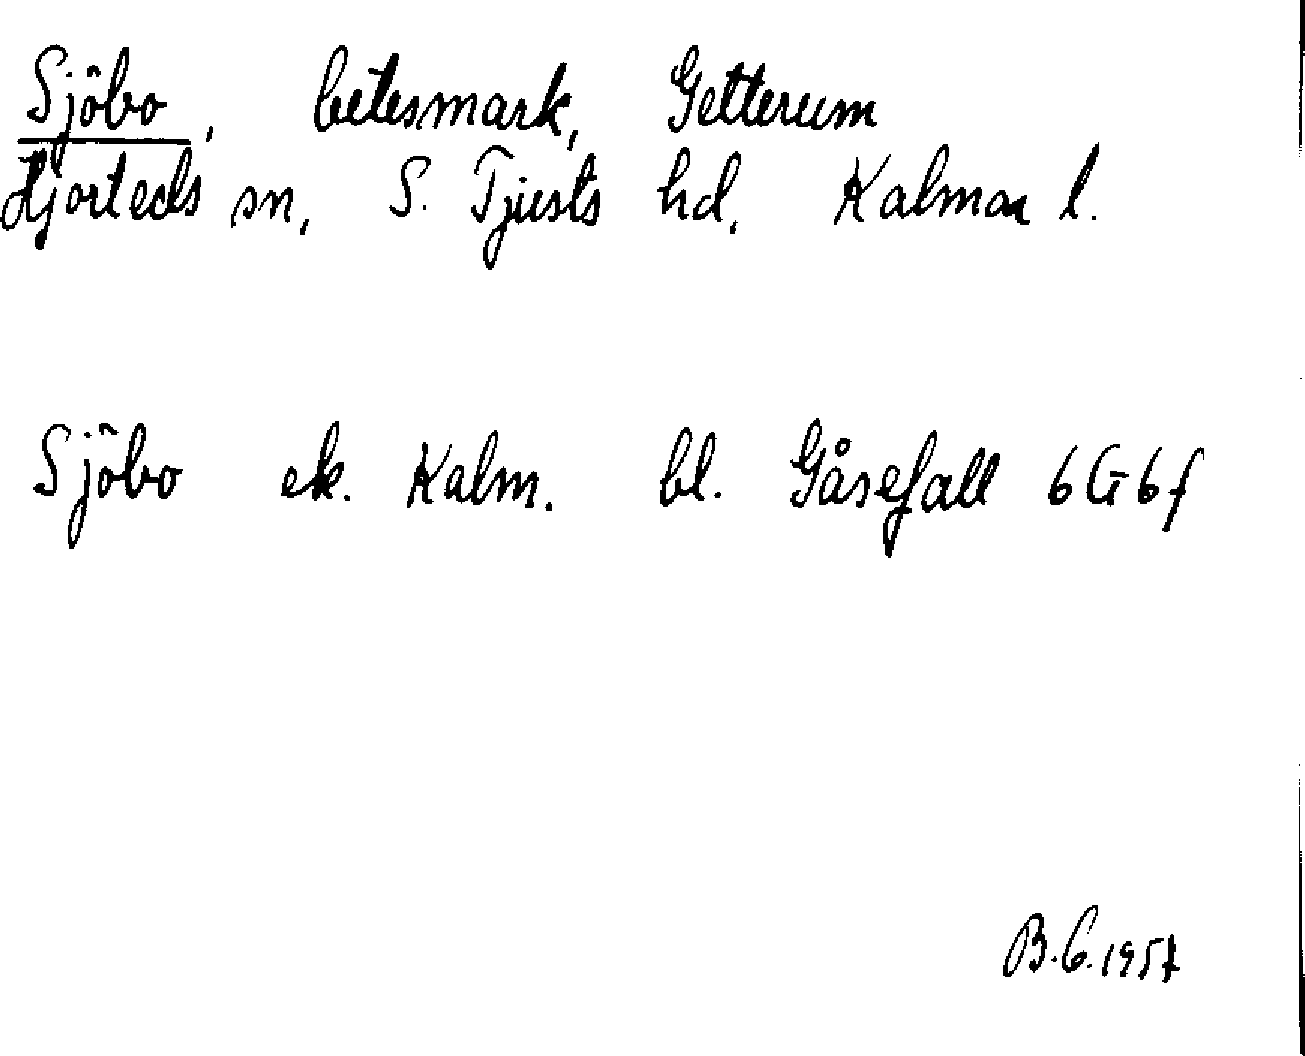 Sjöbo, betesmark, Getterum
Hjorteds sn, S. Tjusts hd, Kalmar l.
Sjöbo ek. Kalm. bl. Gåsefall 6G6f
B.G. 1957